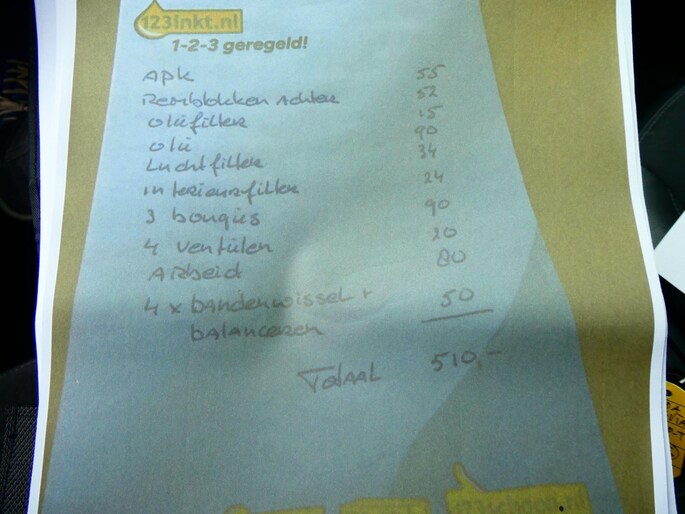 123inkt.nl
1-2-3 geregeld!
APK 55
Remblokken achter 52
oliefilter 15
olie 90
Luchtfilter 34
interieurfilter 24
3 bougies 90
4 ventielen 20
Arbeid 80
4 x bandenwissel + 50
balanceren
Totaal 510,-